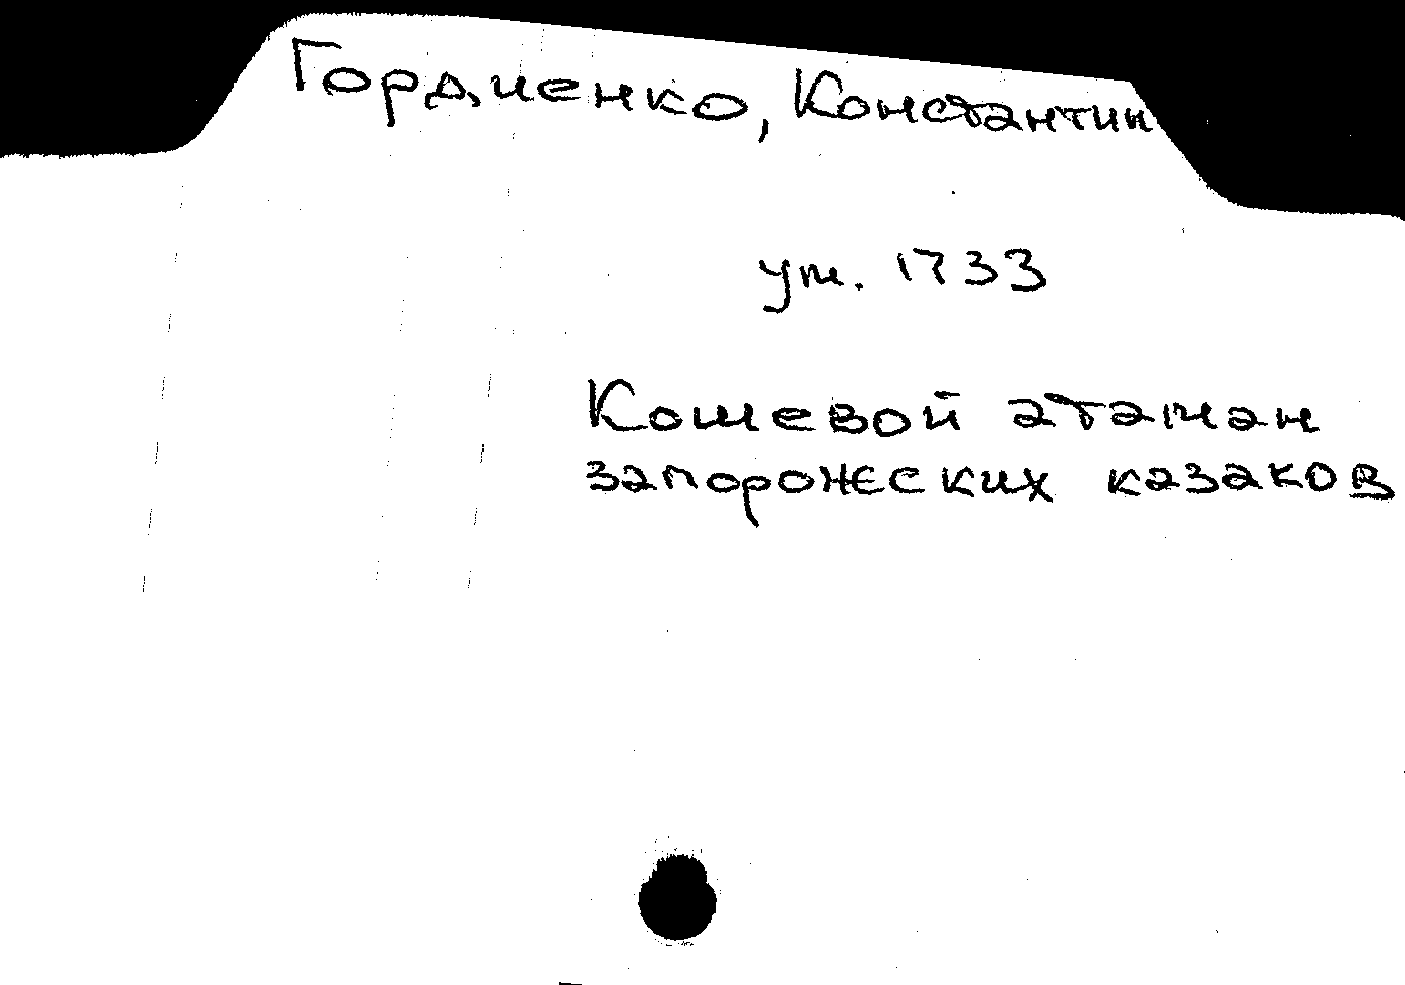 Гордиенко, Константин
ум. 1733
Кошевой атаман
запорожских казаков